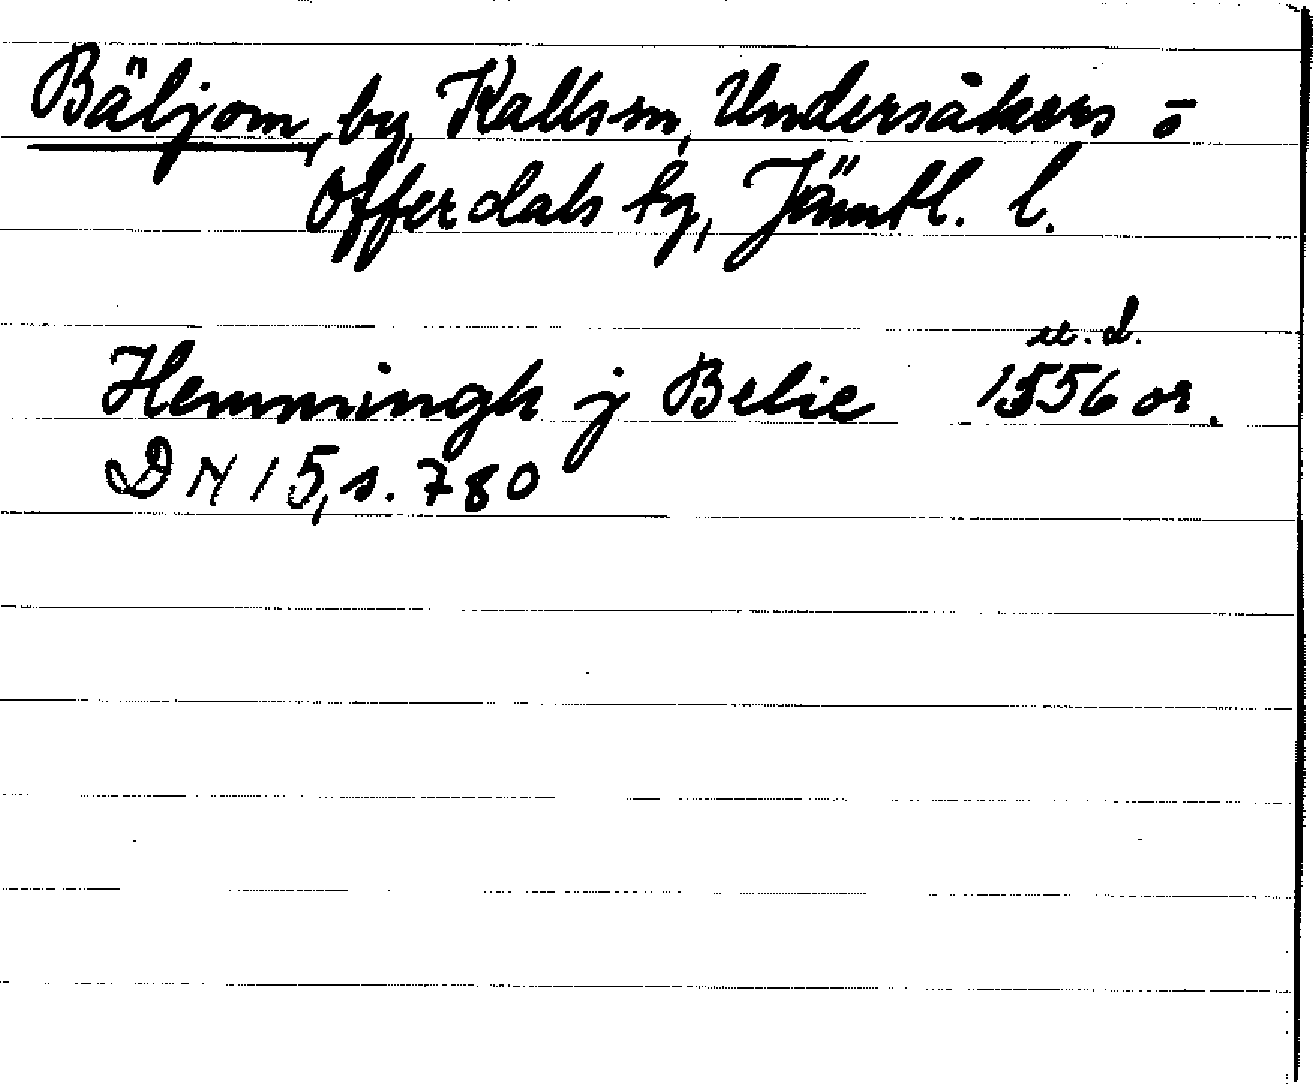 Bäljom, by, Kalls sn, Undersåkers o
Offerdals tg, Jämtl. l.
u. d.
Hemmingh j Belie 1556 or.
DN 15, s. 780